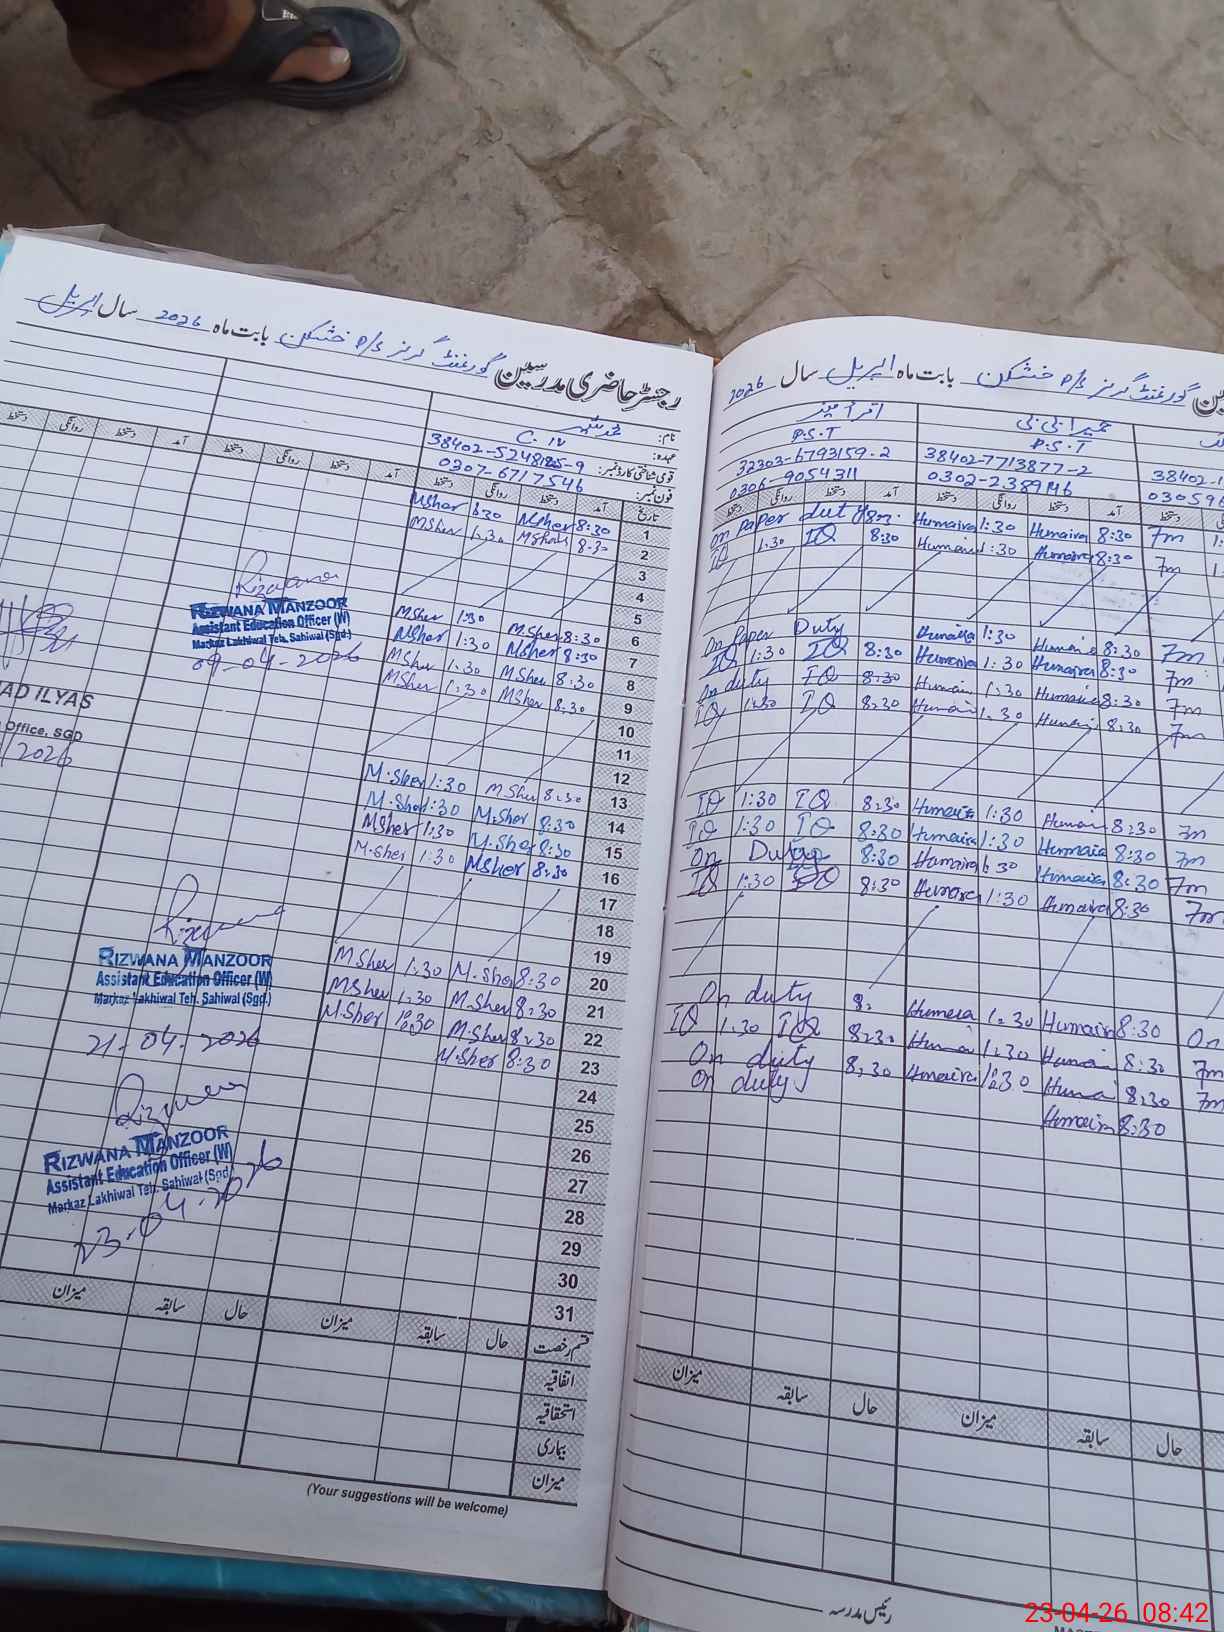 رجسٹر حاضری مدرسین گورنمنٹ گرلز P/S خشکن بابت ماہ 2026 سال اپریل
نام: محمد شیر
عہدہ: C. IV
قومی شناختی کارڈ نمبر:
فون نمبر: 0307-6717546
تاریخ آمد دستخط روانگی دستخط آمد دستخط روانگی دستخط
1 8:30 MSher 1:30 MSher
2 8:30 MSher 1:30 MSher
3
4
5
6 8:30 MSher 1:30 MSher
7 8:30 MSher 1:30 MSher
8 8:30 MSher 1:30 MSher
9 8:30 MSher 1:30 MSher
10
11
12
13 8:30 MSher 1:30 M.Sher
14 8:30 M.Sher 1:30 M.Sher
15 8:30 M.Sher 1:30 MSher
16 8:30 MSher 1:30 M.Sher
17
18
19
20 8:30 M.Sher 1:30 MSher
21 8:30 M.Sher 1:30 MSher
22 8:30 M.Sher M.Sher
23 8:30 M.Sher
24
25
26
27
28
29
30
31
قسم رخصت حال سابقہ میزان حال سابقہ میزان
اتفاقیہ
استحقاقیہ
بیماری
میزان
(Your suggestions will be welcome)
Rizwana
RIZWANA MANZOOR
Assistant Education Officer (W)
Markaz Lakhiwal Teh. Sahiwal (Sgd.)
09-04-2026
AD ILYAS
Office, SGD
/2026
Rizwana
RIZWANA MANZOOR
Assistant Education Officer (W)
Markaz Lakhiwal Teh. Sahiwal (Sgd.)
21-04-2026
Rizwana
RIZWANA MANZOOR
Assistant Education Officer (W)
Markaz Lakhiwal Teh. Sahiwal (Sgd.)
23-04-2026
گورنمنٹ گرلز P/S خشکن بابت ماہ اپریل سال 2026
حمیرا بی بی
P.S.T P.S.T
38402-7713877-2 32303-6793159-2
0306-9054311
آمد دستخط روانگی دستخط آمد دستخط روانگی دستخط
7m 8:30 Humaira 1:30 Humaira on paper duty
7m 8:30 Humaira 1:30 Humaira 8:30 IQ 1:30 IQ
7m 8:30 Humaira 1:30 Humaira On Paper Duty
7m 8:30 Humaira 1:30 Humaira 8:30 IQ 1:30 IQ
7m 8:30 Humaira 1:30 Humaira 8:30 IQ On duty
7m 8:30 Humaira 1:30 Humaira 8:30 IQ 1:30 IQ
7m 8:30 Humaira 1:30 Humaira 8:30 IQ 1:30 IQ
7m 8:30 Humaira 1:30 Humaira 8:30 IQ 1:30 IQ
7m 8:30 Humaira Humaira 8:30 On Duty
7m 8:30 Humaira 1:30 Humaira 8:30 IQ 1:30 IQ
On 8:30 Humaira 1:30 Humaira On duty
7m 8:30 Humaira 1:30 Humaira 8:30 IQ 1:30 IQ
7m 8:30 Humaira Humaira 8:30 On duty
8:30 Humaira On duty
حال سابقہ میزان حال سابقہ میزان
رئیس مدرسہ
23-04-26 08:42